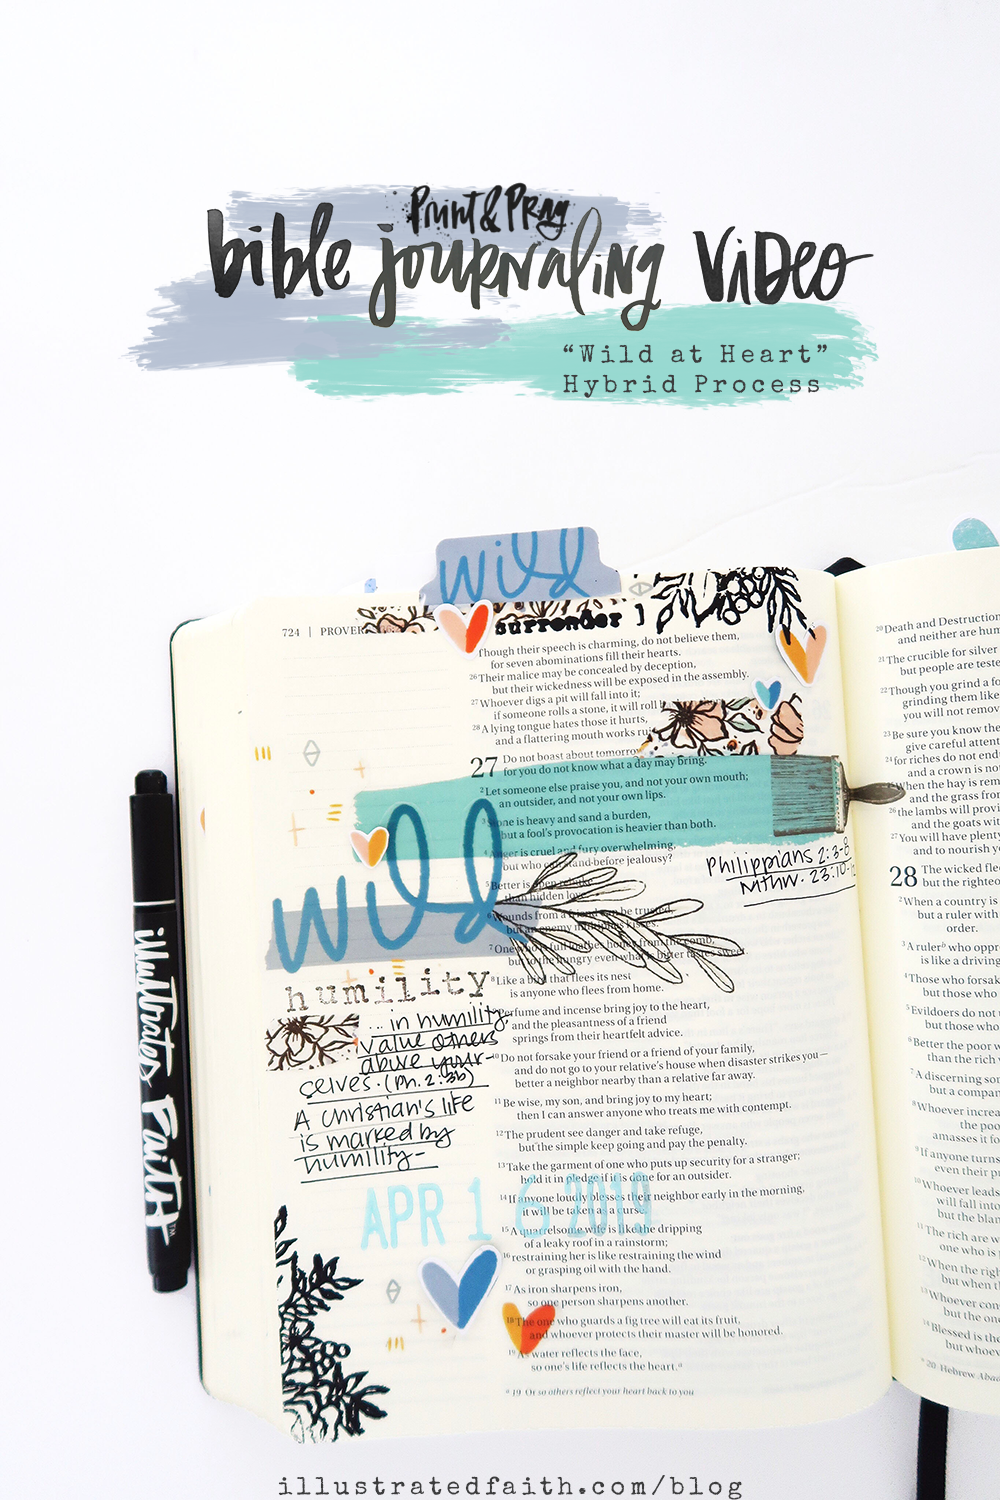 Print & Pray
bible journaling Video
“Wild at Heart”
Hybrid Process
wild
724 | PROVER
surrender
Though their speech is charming, do not believe them,
for seven abominations fill their hearts.
26 Their malice may be concealed by deception,
but their wickedness will be exposed in the assembly.
27 Whoever digs a pit will fall into it;
if someone rolls a stone, it will roll
28 A lying tongue hates those it hurts,
and a flattering mouth works
27 Do not boast about tomorrow
for you do not know what a day may bring.
2 Let someone else praise you, and not your own mouth;
an outsider, and not your own lips.
is heavy and sand a burden,
but a fool's provocation is heavier than both.
4 Anger is cruel and fury overwhelming,
but who can stand before jealousy?
Philippians 2:3-8
Mthw. 23:10-12
wild
5 Better is open rebuke
than hidden love.
6 Wounds from a friend can be trusted,
but an enemy multiplies kisses.
7 One who is full loathes honey from the comb,
but to the hungry even what is bitter tastes sweet.
8 Like a bird that flees its nest
is anyone who flees from home.
humility
... in humility
value others
above your-
selves. (Ph. 2:3b)
A christian's life
is marked by
humility-
Perfume and incense bring joy to the heart,
and the pleasantness of a friend
springs from their heartfelt advice.
10 Do not forsake your friend or a friend of your family,
and do not go to your relative's house when disaster strikes you—
better a neighbor nearby than a relative far away.
11 Be wise, my son, and bring joy to my heart;
then I can answer anyone who treats me with contempt.
12 The prudent see danger and take refuge,
but the simple keep going and pay the penalty.
13 Take the garment of one who puts up security for a stranger;
hold it in pledge if it is done for an outsider.
14 If anyone loudly blesses their neighbor early in the morning,
it will be taken as a curse.
APR 1 6 2019
15 A quarrelsome wife is like the dripping
of a leaky roof in a rainstorm;
16 restraining her is like restraining the wind
or grasping oil with the hand.
17 As iron sharpens iron,
so one person sharpens another.
18 The one who guards a fig tree will eat its fruit,
and whoever protects their master will be honored.
19 As water reflects the face,
so one's life reflects the heart.a
a 19 Or so others reflect your heart back to you
20 Death and Destruction
and neither are hum
21 The crucible for silver
but people are teste
22 Though you grind a fo
grinding them like
you will not remov
23 Be sure you know the
give careful attent
24 for riches do not end
and a crown is not
When the hay is remo
and the grass from
26 the lambs will provi
and the goats wit
27 You will have plenty
and to nourish yo
28 The wicked flee
but the righteo
2 When a country is
but a ruler with
order.
3 A ruler b who oppr
is like a driving
4 Those who forsak
but those who
5 Evildoers do not u
but those who
6 Better the poor w
than the rich w
7 A discerning son
but a compan
8 Whoever increa
the poo
amasses it fo
9 If anyone turns
even their pr
10 Whoever leads
will fall into
but the blan
11 The rich are w
one who is
12 When the righ
but when t
13 Whoever con
but the one
14 Blessed is the
but whoev
a 20 Hebrew Abad
illustrated Faith™
illustratedfaith.com/blog